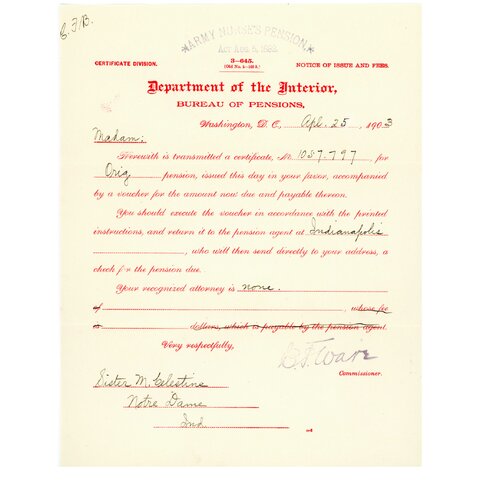 C.F.B.
ARMY NURSE'S PENSION,
Act Aug. 5, 1892.
3—645.
CERTIFICATE DIVISION.
NOTICE OF ISSUE AND FEES.
Department of the Interior,
BUREAU OF PENSIONS,
Washington, D. C., Apl. 25, 1903
Madam:
Herewith is transmitted a certificate, No. 1057.797, for
Orig pension, issued this day in your favor, accompanied
by a voucher for the amount now due and payable thereon.
You should execute the voucher in accordance with the printed
instructions, and return it to the pension agent at Indianapolis
, who will then send directly to your address, a
check for the pension due.
Your recognized attorney is none.
of , whose fee
is dollars, which is payable by the pension agent.
Very respectfully,
Commissioner.
Sister M. Celestine
Notre Dame
Ind